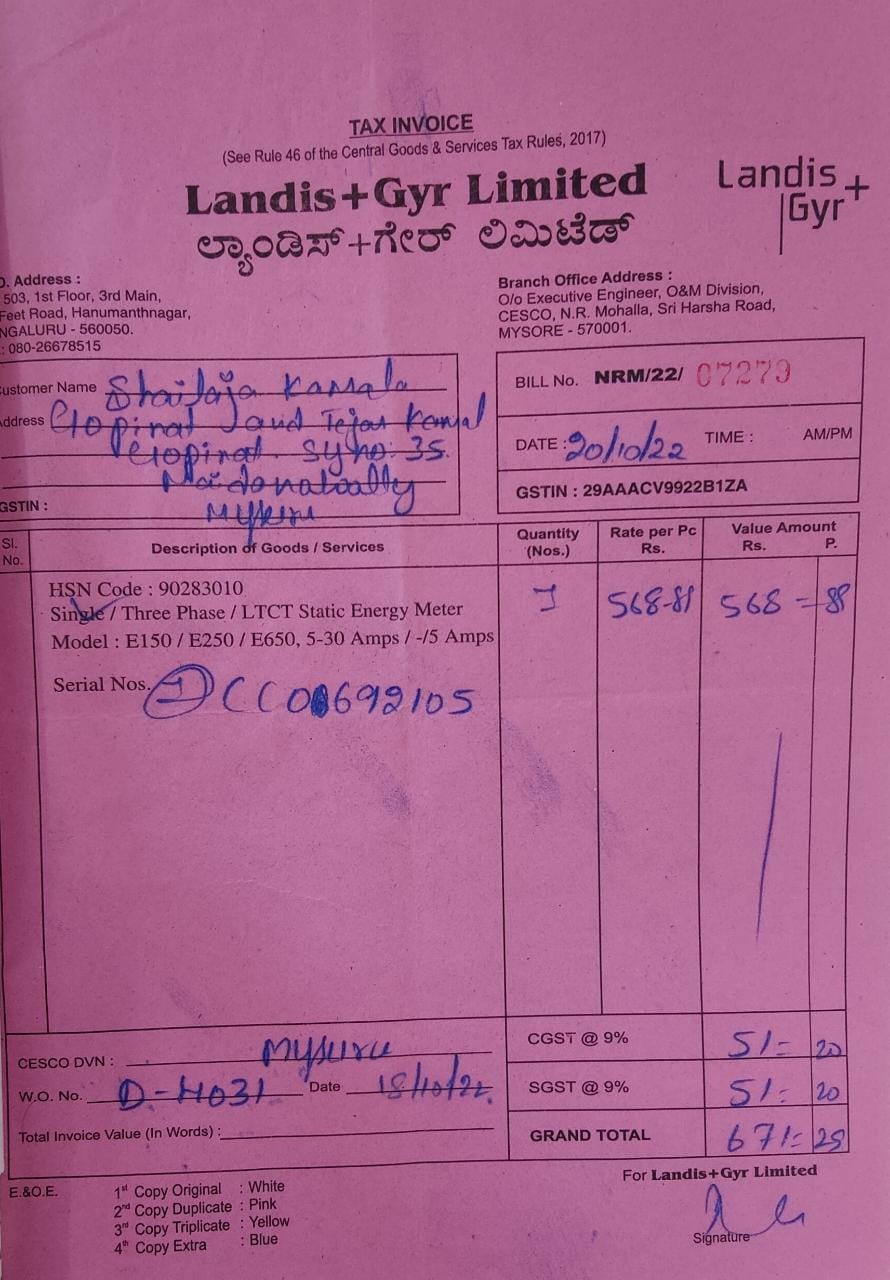 TAX INVOICE
(See Rule 46 of the Central Goods & Services Tax Rules, 2017)
Landis+Gyr Limited
ಲ್ಯಾಂಡಿಸ್+ಗೇರ್ ಲಿಮಿಟೆಡ್
Landis
Gyr+
O. Address :
503, 1st Floor, 3rd Main,
Feet Road, Hanumanthnagar,
NGALURU - 560050.
: 080-26678515
Branch Office Address :
O/o Executive Engineer, O&M Division,
CESCO, N.R. Mohalla, Sri Harsha Road,
MYSORE - 570001.
ustomer Name Shailaja Kamala
ddress Gopinat Jaud Tejas
Gopinat Sy no: 35.
Mysuru
GSTIN :
BILL No. NRM/22/ 07279
DATE : 20/10/22 TIME : AM/PM
GSTIN : 29AAACV9922B1ZA
Sl. No. Description of Goods / Services Quantity (Nos.) Rate per Pc Rs. Value Amount Rs. P.
HSN Code : 90283010
Single / Three Phase / LTCT Static Energy Meter 1 568-81 568=
Model : E150 / E250 / E650, 5-30 Amps / -/5 Amps
Serial Nos. 1 CC00692105
CESCO DVN : Mysuru
W.O. No. D-4031 Date 18/10/22
Total Invoice Value (In Words) :
CGST @ 9% 51= 20
SGST @ 9% 51= 20
GRAND TOTAL 671=
E.&O.E.
1st Copy Original : White
2nd Copy Duplicate : Pink
3rd Copy Triplicate : Yellow
4th Copy Extra : Blue
For Landis+Gyr Limited
Signature